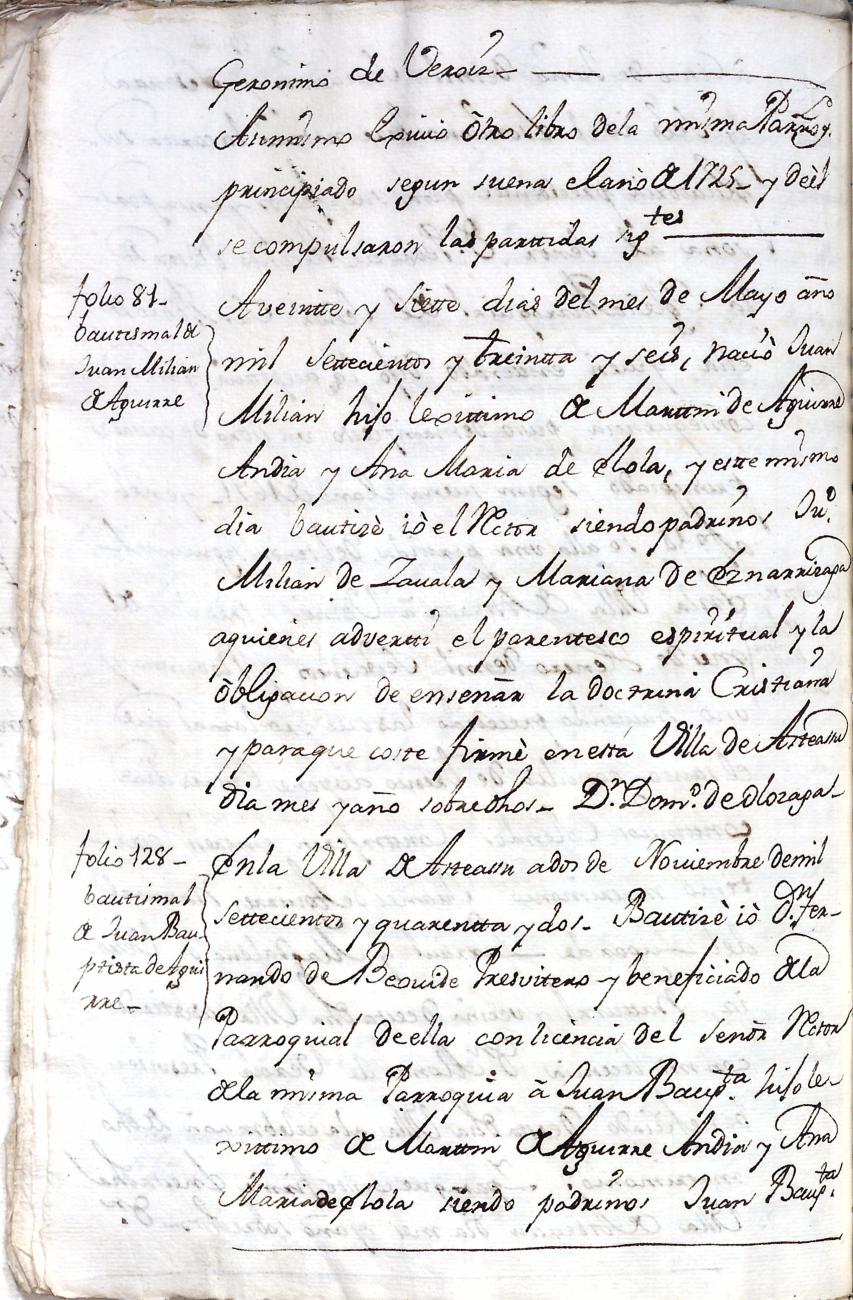 Geronimo de Veroiz
Asimismo exivio òtro libro dela misma Parroq.l
principiado segun suena el año de 1725 - y deèl
se compulsaron las parttidas sig.tes
folio 81 -
bautismal de
Juan Milian
de Aguirre
A veintte y siette dias del mes de Mayo año
mil settecientos y treintta y seis, naciò Juan
Milian hijo lexittimo de Marttin de Aguirre
Andia y Ana Maria de Elola, y este mismo
dia bautizè iò el Rector siendo padrinos Ju.o
Milian de Zavala y Mariana de Eznarrizaga
aquienes adverttì el parentesco espiritual y la
òbligacion de enseñar la doctrina Cristiana
y paraque coste firmè en esta Villa de Asteasu
dia mes y año sobredhos - D.n Dom.o de Olozaga -
folio 128 -
bautismal
de Juan Bau-
ptista de Agui
rre -
En la Villa de Asteasu a dos de Noviembre de mil
settecientos y quarentta y dos - Bautizè iò d.n Fer-
nando de Beovide Presvitero y beneficiado de la
Parroquial de ella con licencia del señor Rector
de la misma Parroquia à Juan Baup.ta hijo le-
xittimo de Marttin de Aguirre Andia y Ana
Maria de Elola siendo padrinos Juan Baup.ta